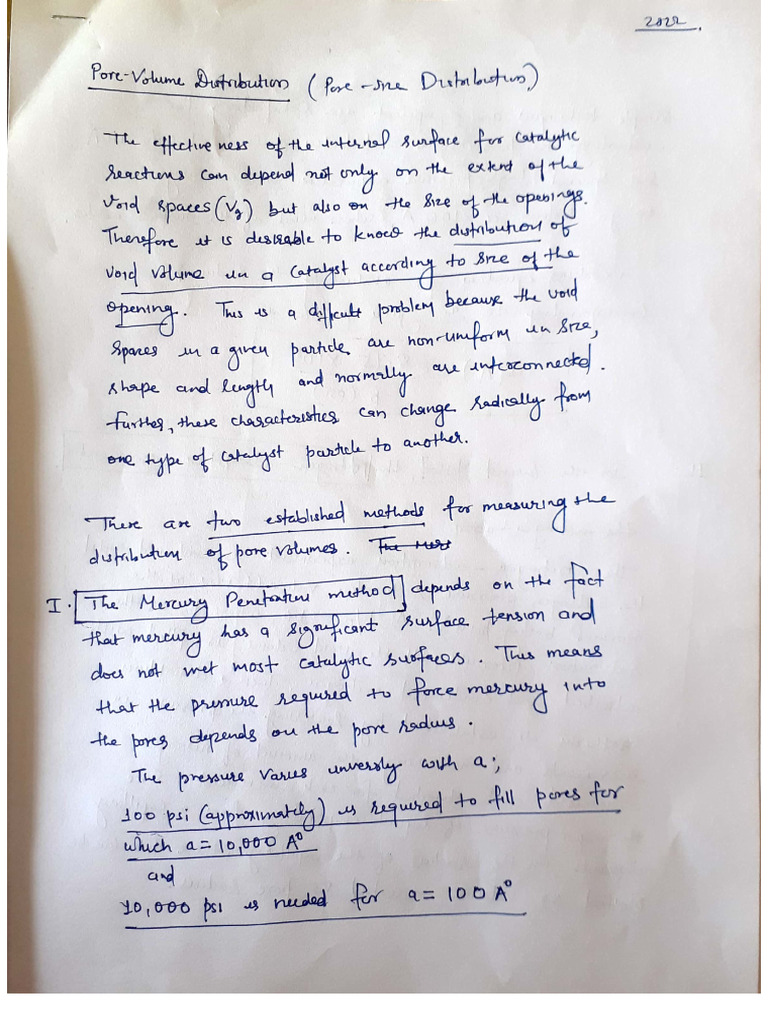 2022
Pore-Volume Distribution (Pore-size Distribution)
The effectiveness of the internal surface for catalytic
reactions can depend not only on the extent of the
void spaces (Vg) but also on the size of the openings.
Therefore it is desirable to know the distribution of
void volume in a catalyst according to size of the
opening. This is a difficult problem because the void
spaces in a given particle are non-uniform in size,
shape and length and normally are interconnected.
further, these characteristics can change radically from
one type of catalyst particle to another.
There are two established methods for measuring the
distribution of pore volumes.
I. The Mercury Penetration method depends on the fact
that mercury has a significant surface tension and
does not wet most catalytic surfaces. This means
that the pressure required to force mercury into
the pores depends on the pore radius.
The pressure varies inversly with a;
100 psi (approximately) is required to fill pores for
which a = 10,000 A°
and
10,000 psi is needed for a = 100 A°